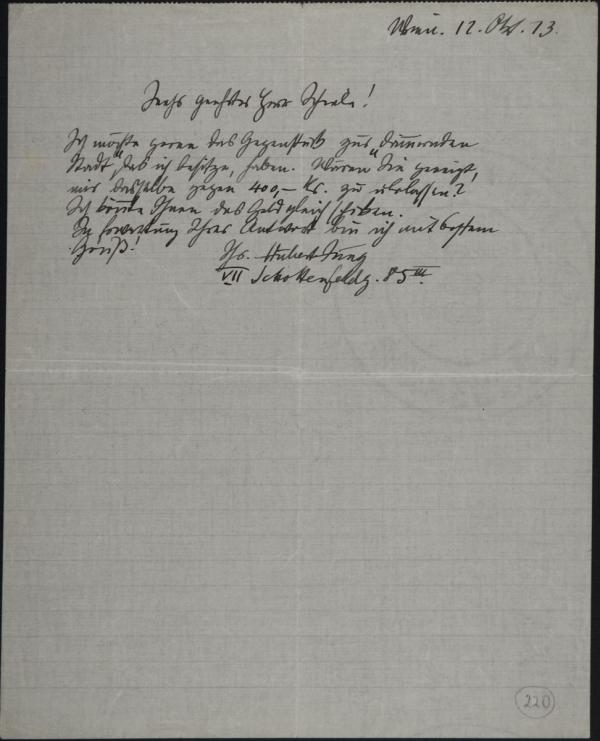 Wien. 12. Okt. 13.
Sehr geehrter Herr Schiele!
Ich möchte gerne das Gegenstück zur „dämmernden
Stadt“, das ich besitze, haben. Wären Sie geneigt,
mir dasselbe gegen 400,– Kr. zu überlassen?
Ich könnte Ihnen das Geld gleich geben.
In Erwartung Ihrer Antwort bin ich mit bestem
Gruß!
Ihr Hubert Jung
VII Schottenfeldg. 85 III.
220